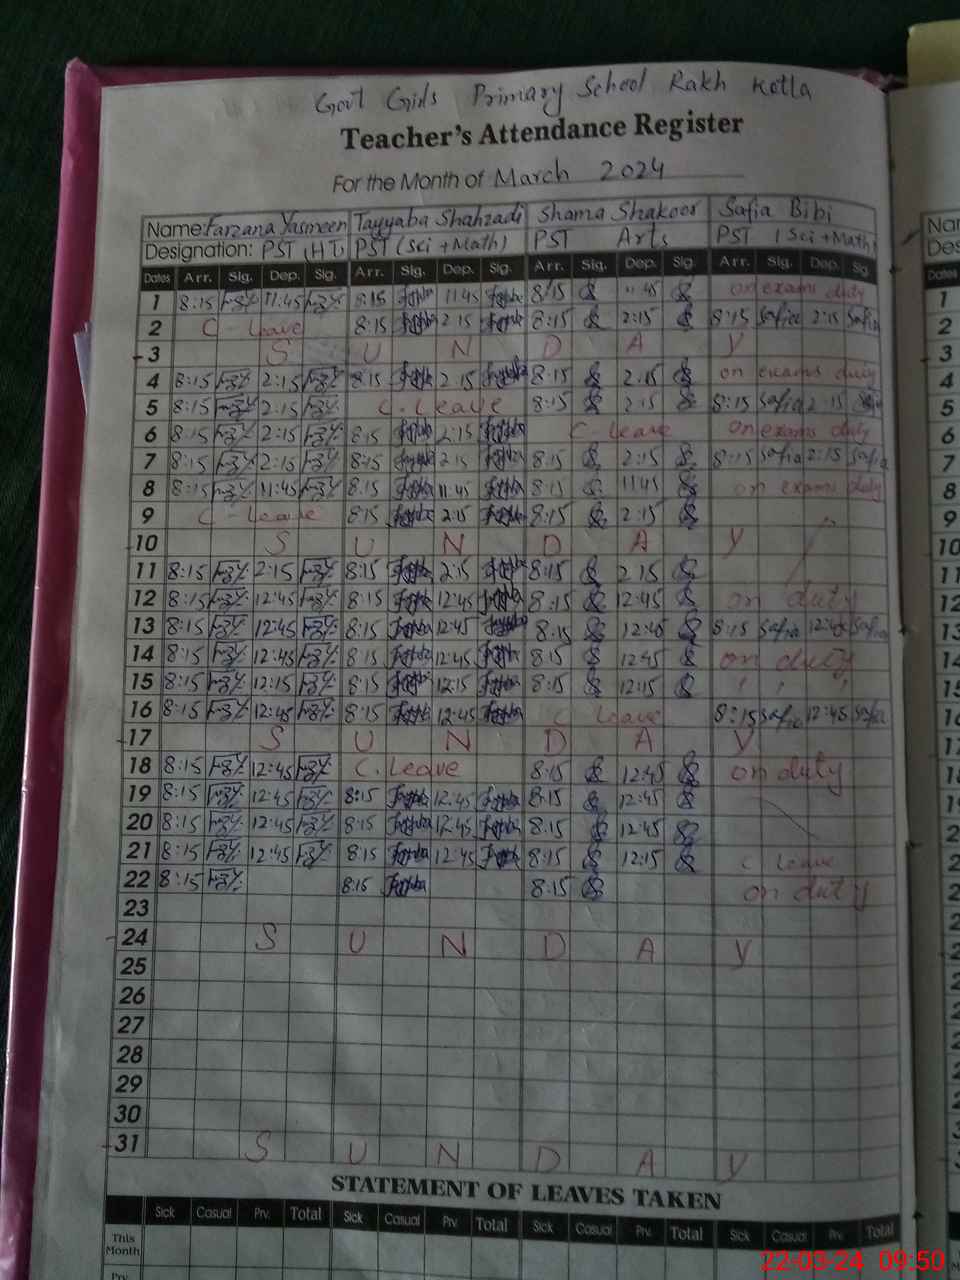 Govt Girls Primary School Rakh Kotla
Teacher's Attendance Register
For the Month of March 2024
Name: Farzana Yasmeen Tayyaba Shahzadi Shama Shakoor Safia Bibi
Designation: PST (HT) PST (Sci + Math) PST Arts PST (Sci + Math)
Dates Arr. Sig. Dep. Sig. Arr. Sig. Dep. Sig. Arr. Sig. Dep. Sig. Arr. Sig. Dep. Sig.
1 8:15 11:45 8:15 11:45 8:15 11:45 on exams duty
2 C-Leave 8:15 2:15 8:15 2:15 8:15 Safia 2:15 Safia
3 S U N D A Y
4 8:15 2:15 8:15 2:15 8:15 2:15 on exams duty
5 8:15 2:15 C.Leave 8:15 2:15 8:15 Safia 2:15 Safia
6 8:15 2:15 8:15 2:15 C-leave on exams duty
7 8:15 2:15 8:15 2:15 8:15 2:15 8:15 Safia 2:15 Safia
8 8:15 11:45 8:15 11:45 8:15 11:45 on exams duty
9 C-Leave 8:15 2:15 8:15 2:15
10 S U N D A Y
11 8:15 2:15 8:15 2:15 8:15 2:15
12 8:15 12:45 8:15 12:45 8:15 12:45 on duty
13 8:15 12:45 8:15 12:45 8:15 12:45 8:15 Safia 12:45 Safia
14 8:15 12:45 8:15 12:45 8:15 12:45 on duty
15 8:15 12:15 8:15 12:15 8:15 12:15 " " "
16 8:15 12:45 8:15 12:45 C Leave 8:15 Safia 12:45 Safia
17 S U N D A Y
18 8:15 12:45 C.Leave 8:15 12:45 on duty
19 8:15 12:45 8:15 12:45 8:15 12:45
20 8:15 12:45 8:15 12:45 8:15 12:45
21 8:15 12:45 8:15 12:45 8:15 12:15 C Leave
22 8:15 8:15 8:15 on duty
23
24 S U N D A Y
25
26
27
28
29
30
31 S U N D A Y
STATEMENT OF LEAVES TAKEN
Sick Casual Prv. Total Sick Casual Prv. Total Sick Casual Prv. Total Sick Casual Prv. Total
This Month
22-03-24 09:50